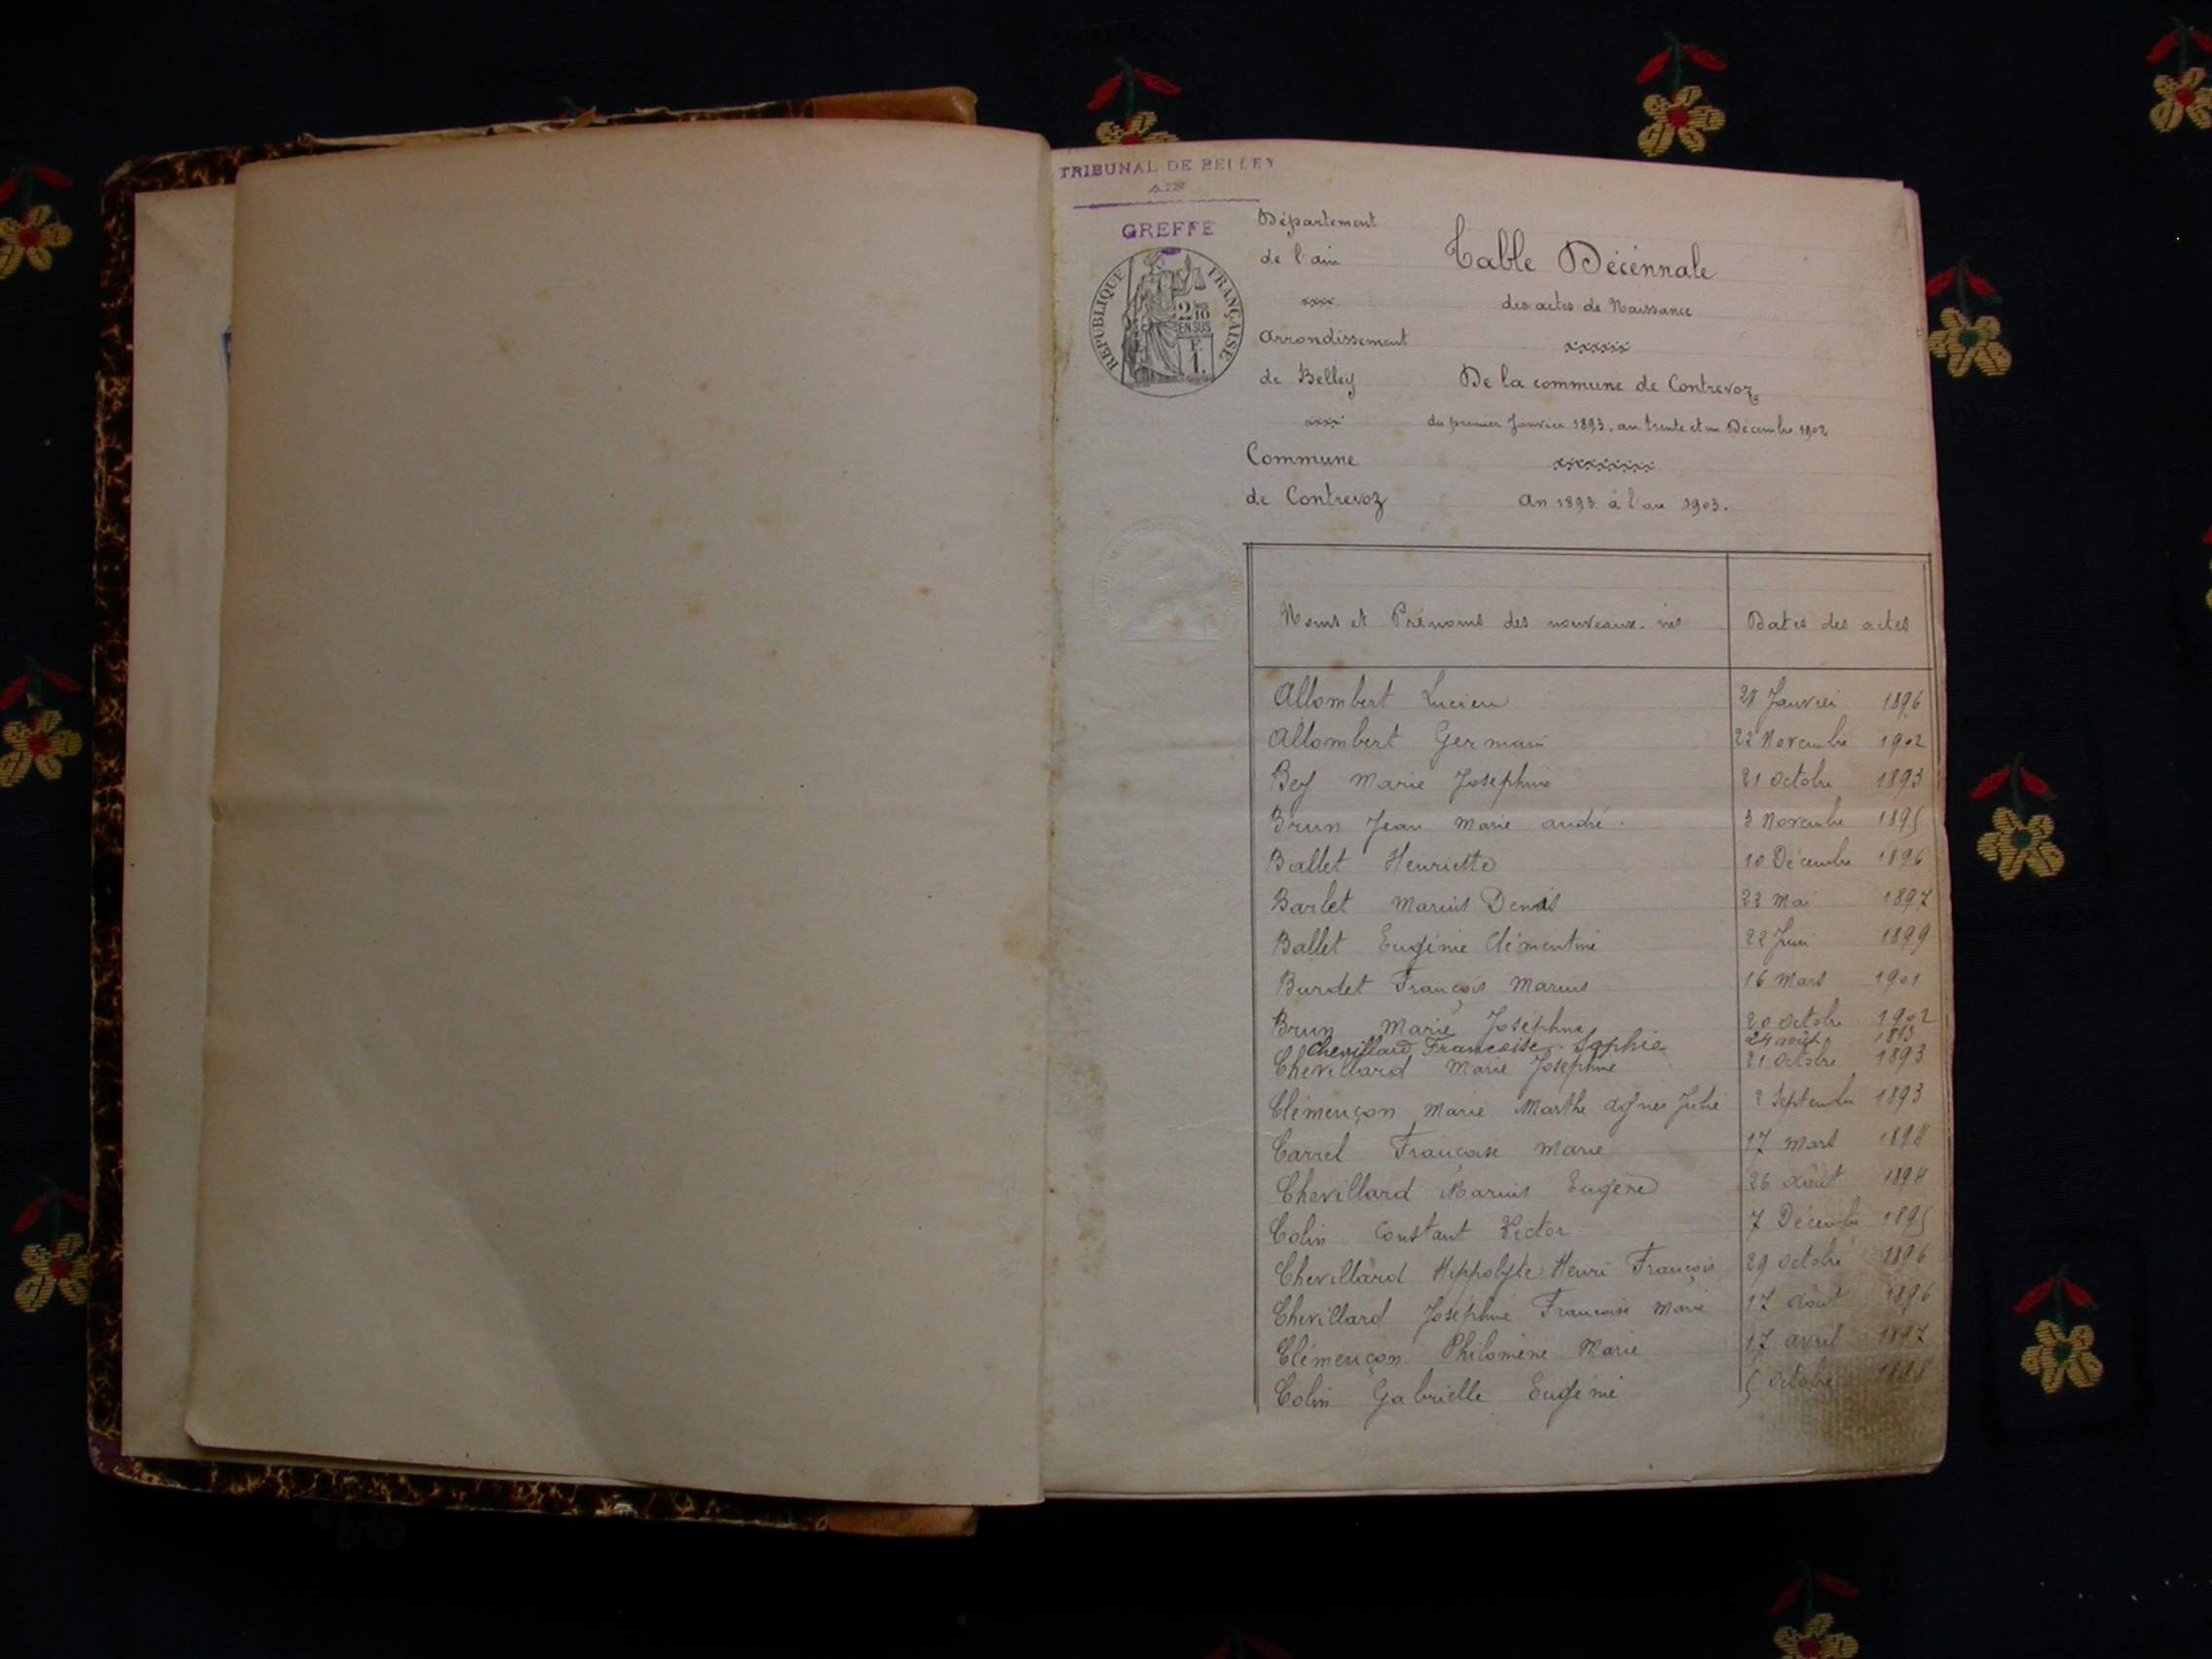 TRIBUNAL DE BELLEY
AIN
GREFFE
RÉPUBLIQUE FRANÇAISE
2/10
EN SUS
F.
1.
Département
de l'ain
Arrondissement
de Belley
Commune
de Contrevoz
Table Décennale
des actes de Naissance
De la commune de Contrevoz
du premier Janvier 1893, au trente et un Décembre 1902
An 1893 à l'an 1903.
Noms et Prénoms des nouveaux-nés Dates des actes
Allombert Lucien 28 Janvier 1896
Allombert Germain 22 Novembre 1902
Bey Marie Joséphine 21 Octobre 1893
Brun Jean Marie andré. 3 Novembre 1895
Ballet Henriette 10 Décembre 1896
Barlet Marius Denis 22 Mai 1897
Ballet Eugénie Clémentine 22 Juin 1899
Burdet François Marius 16 Mars 1901
Brun Marie Joséphine 20 Octobre 1902
Chevillard Francoise Sophie 24 août 1893
Chevillard Marie Joséphine 21 Octobre 1893
Clémençon Marie Marthe Agnès Julie 2 Septembre 1893
Carrel Françoise Marie 17 Mars 1894
Chevillard Marius Eugène 26 Août 1894
Colin Constant Victor 7 Décembre 1895
Chevillard Hippolyte Henri François 29 Octobre 1896
Chevillard Joséphine Françoise Marie 17 Août 1896
Clémençon Philomène Marie 17 avril 1897
Colin Gabrielle Eugénie 5 Octobre 1898